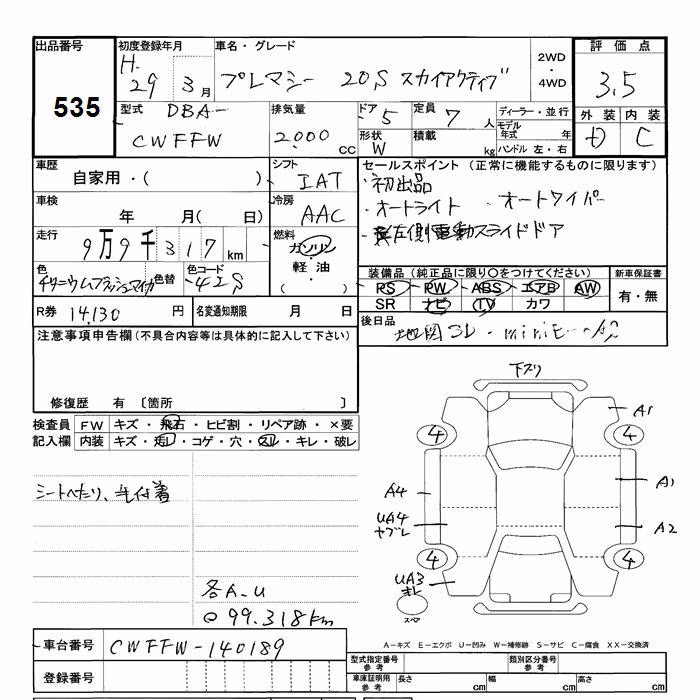 出品番号 初度登録年月 車名・グレード 評価点
535
H. 29 3月 プレマシー 20S スカイアクティブ 2WD・4WD 3.5
型式 DBA- 排気量 ドア 5 定員 7人 ディーラー・並行 外装 内装
CWFFW 2.000cc 形状 W 積載 kg モデル年式 年 ハンドル 左・右 D C
車歴 シフト セールスポイント (正常に機能するものに限ります)
自家用・( ) IAT ・初出品
車検 年 月( 日) 冷房 AAC ・オートライト ・オートワイパー
走行 9万9千317km 燃料 ガソリン ・左側電動スライドドア
軽油・( )
色 チタニウムフラッシュマイカ 色替 色コード 42S
装備品 (純正品に限り〇をつけてください) 新車保証書
RS PW ABS エアB AW 有・無
SR ナビ TV カワ
R券 14,130円 名変通知期限 月 日
後日品 地図SD・
注意事項申告欄(不具合内容等は具体的に記入して下さい)
下スリ
修復歴 有 〔箇所 〕
検査員記入欄 FW キズ・飛石・ヒビ割・リペア跡・×要
内装 キズ・汚レ・コゲ・穴・スレ・キレ・破レ
A1
4 4
シートへたり、毛付着
A4 A1
UA4 ヤブレ A2
4 4
UA3 キレ
スペア
各A.U
〇99.318km
車台番号 CWFFW-140189
A-キズ E-エクボ U-凹み W-補修跡 S-サビ C-腐食 XX-交換済
登録番号
型式指定番号 参考 類別区分番号 参考
車庫証明用 参考 長さ cm 幅 cm 高さ cm